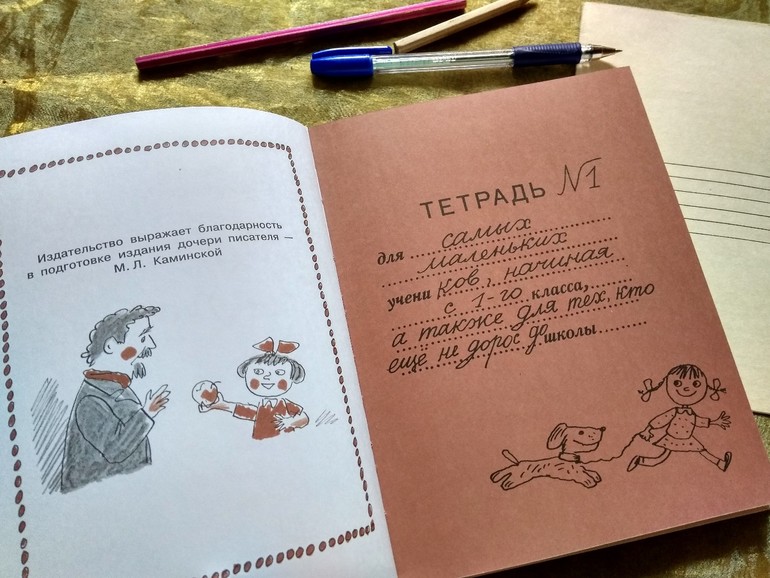 Издательство выражает благодарность
в подготовке издания дочери писателя —
М. Л. Каминской
ТЕТРАДЬ №1
для самых
маленьких
учени ков, начиная
с 1-го класса,
а также для тех, кто
ещё не дорос до школы